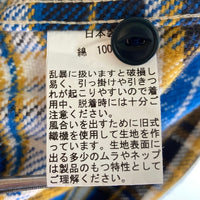 日本製
綿 100
乱暴に扱いますと破損し
易く、引っ掛けや引きつ
れが起こりやすいので着
用中、脱着時には十分ご
注意ください。
風合いを出すために旧式
織機を使用して生地を作
っています。生地表面に
出る多少のムラやネップ
は製品のもつ特性として
ご理解ください。